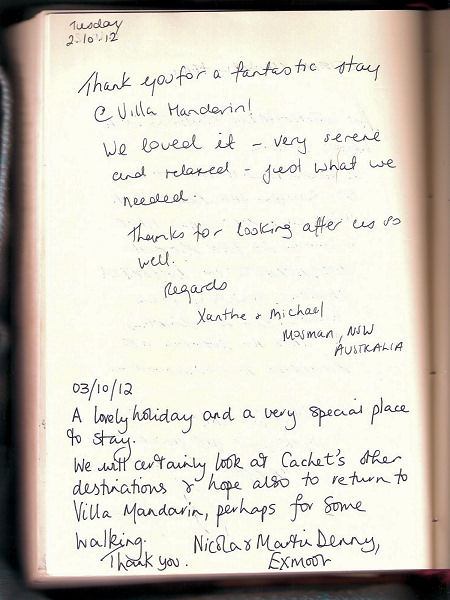 Tuesday
2.10.12
Thank you for a fantastic stay
@ Villa Mandarin!
We loved it - very serene
and relaxed - just what we
needed.
Thanks for looking after us so
well.
Regards
Xanthe & Michael
Mosman, NSW
AUSTRALIA
03/10/12
A lovely holiday and a very special place
to stay.
We will certainly look at Cachet's other
destinations & hope also to return to
Villa Mandarin, perhaps for some
walking.
Nicola & Martin Denny,
Thank you.
Exmoor